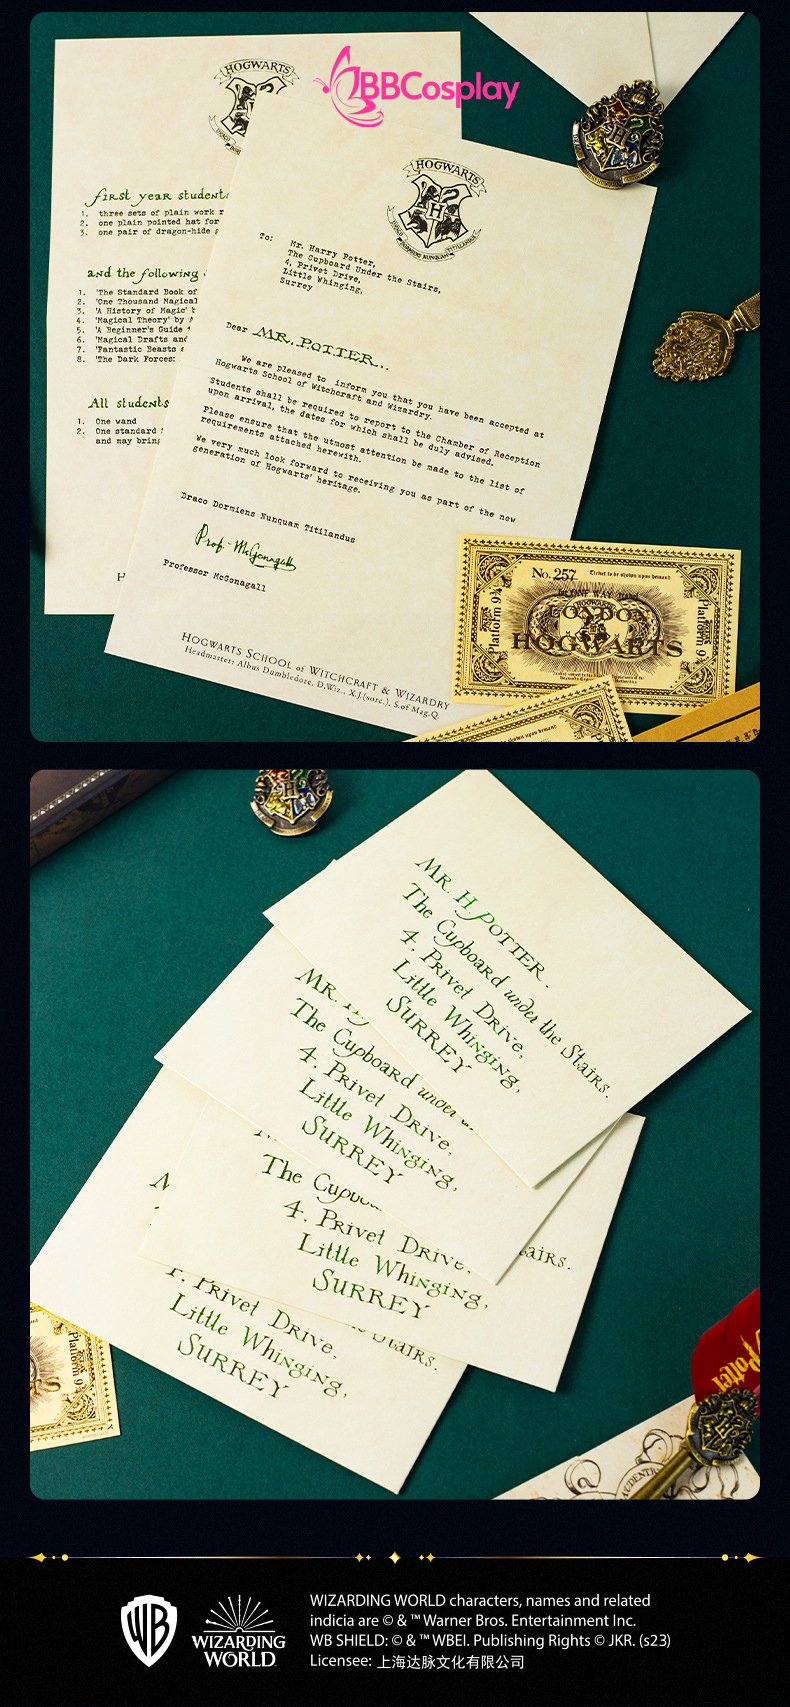 BBCosplay
HOGWARTS
first year students
1. three sets of plain work
2. one plain pointed hat for
3. one pair of dragon-hide
and the following
1. 'The Standard Book of
2. 'One Thousand Magical
3. 'A History of Magic'
4. 'Magical Theory' by
5. 'A Beginner's Guide
6. 'Magical Drafts and
7. 'Fantastic Beasts
8. 'The Dark Forces:
All students
1. One wand
2. One standard
and may bring
HOGWARTS
DRACO DORMIENS NUNQUAM TITILLANDUS
To: Mr. Harry Potter,
The Cupboard Under the Stairs,
4, Privet Drive,
Little Whinging,
Surrey
Dear MR. POTTER..
We are pleased to inform you that you have been accepted at
Hogwarts School of Witchcraft and Wizardry.
Students shall be required to report to the Chamber of Reception
upon arrival, the dates for which shall be duly advised.
Please ensure that the utmost attention be made to the list of
requirements attached herewith.
We very much look forward to receiving you as part of the new
generation of Hogwarts' heritage.
Draco Dormiens Nunquam Titilandus
Prof. McGonagall
Professor McGonagall
HOGWARTS SCHOOL of WITCHCRAFT & WIZARDRY
Headmaster: Albus Dumbledore, D.Wiz., X.J.(sorc.), S.of Mag.Q.
No. 257
Ticket to be shown upon demand
LONDON
HOGWARTS
Platform 9¾
Platform 9
MR. H. POTTER.
The Cupboard under the Stairs.
4. Privet Drive,
Little Whinging,
SURREY
MR. H
The Cupboard under
4. Privet Drive,
Little Whinging,
SURREY
The
4. Privet Drive,
tairs.
Little Whinging,
SURREY
Privet Drive,
Stairs.
Little Whinging,
SURREY
Platform 9
Potter
WB
WIZARDING
WORLD
WIZARDING WORLD characters, names and related
indicia are © & ™ Warner Bros. Entertainment Inc.
WB SHIELD: © & ™ WBEI. Publishing Rights © JKR. (s23)
Licensee: 上海达脉文化有限公司